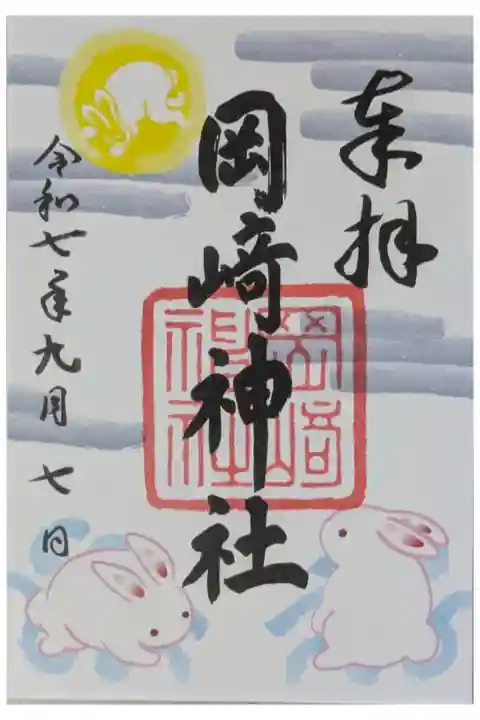 奉拝
岡﨑神社
岡崎神社
令和七年九月七日